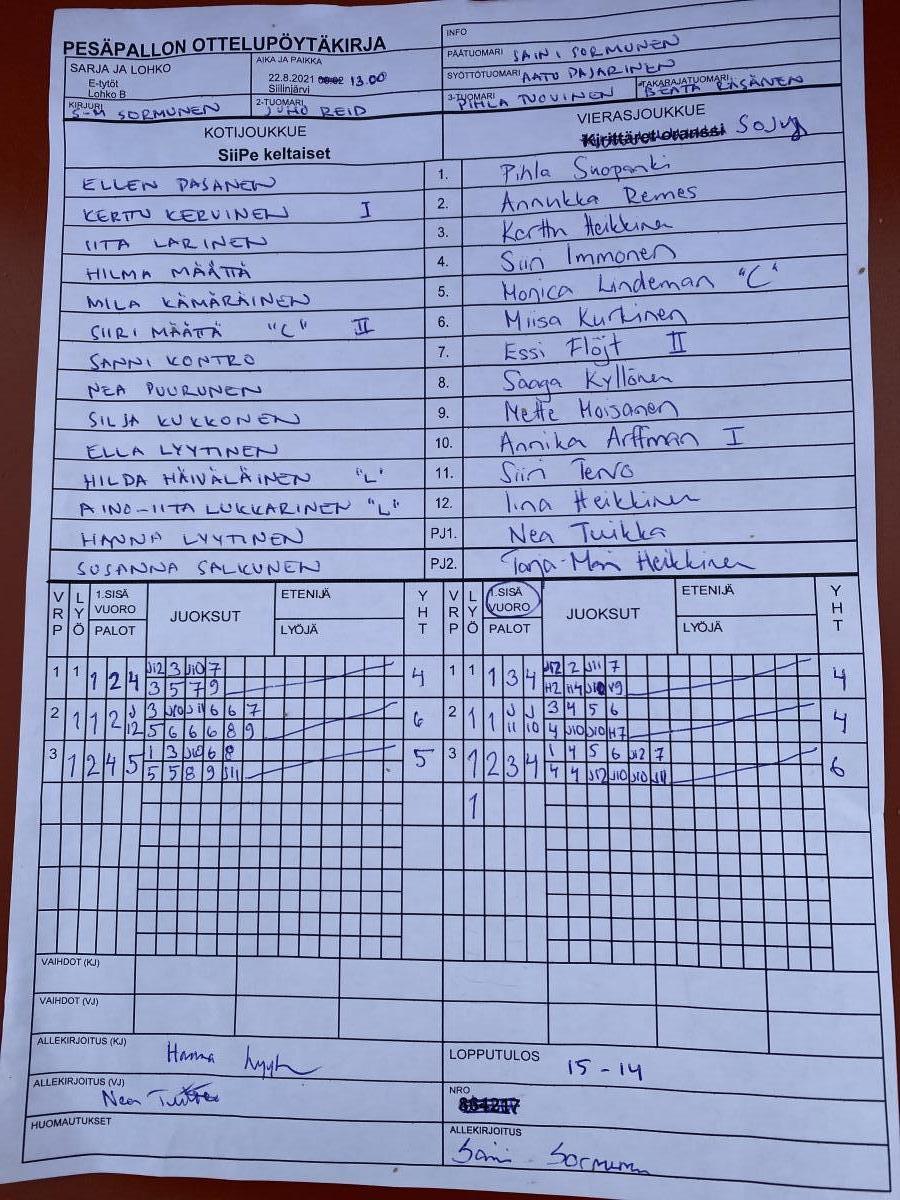 PESÄPALLON OTTELUPÖYTÄKIRJA
INFO
SARJA JA LOHKO
E-tytöt
Lohko B
AIKA JA PAIKKA
22.8.2021 13.00
Siilinjärvi
PÄÄTUOMARI SAINI SORMUNEN
SYÖTTÖTUOMARI AATU PAJARINEN
KIRJURI S-M SORMUNEN
2-TUOMARI JUHO REID
3-TUOMARI PIHLA TUOVINEN
TAKARAJATUOMARI BEATA RÄSÄNEN
KOTIJOUKKUE
SiiPe keltaiset
VIERASJOUKKUE
Kirittäret oranssi SoJy
ELLEN PASANEN 1. Pihla Suopanki
KERTTU KERVINEN I 2. Annukka Remes
IITA LARINEN 3. Kerttu Heikkinen
HILMA MÄÄTTÄ 4. Siiri Immonen
MILA KÄMÄRÄINEN 5. Monica Lindeman "C"
SIIRI MÄÄTTÄ "C" II 6. Miisa Kurkinen
SANNI KONTRO 7. Essi Flöjt II
NEA PUURUNEN 8. Saaga Kyllönen
SILJA KUKKONEN 9. Mette Moisanen
ELLA LYYTINEN 10. Annika Arffman I
HILDA HÄIVÄLÄINEN "L" 11. Siiri Tervo
AINO-IITA LUKKARINEN "L" 12. Iina Heikkinen
HANNA LYYTINEN PJ1. Nea Tuikka
SUSANNA SALKUNEN PJ2. Tarja-Mari Heikkinen
VRP LYÖ 1.SISÄ VUORO PALOT JUOKSUT ETENIJÄ LYÖJÄ YHT VRP LYÖ 1.SISÄ VUORO PALOT JUOKSUT ETENIJÄ LYÖJÄ YHT
1 1 1 2 4 J12 3 J10 7 4 1 1 1 3 4 J12 2 J11 7 4
3 5 7 9 H2 H4 J10 V9
2 1 1 2 J12 3 J10 J11 6 6 7 6 2 1 1 J11 J10 3 4 5 6 4
5 6 6 6 8 9 4 J10 J10 H7
3 1 2 4 5 1 3 J10 6 8 5 3 1 2 3 4 1 4 5 6 J12 7 6
5 5 8 9 J11 4 4 J12 J10 J10 J11
1
VAIHDOT (KJ)
VAIHDOT (VJ)
ALLEKIRJOITUS (KJ) Hanna
LOPPUTULOS 15 - 14
ALLEKIRJOITUS (VJ) Nea
NRO
HUOMAUTUKSET
ALLEKIRJOITUS
Saini Sormunen